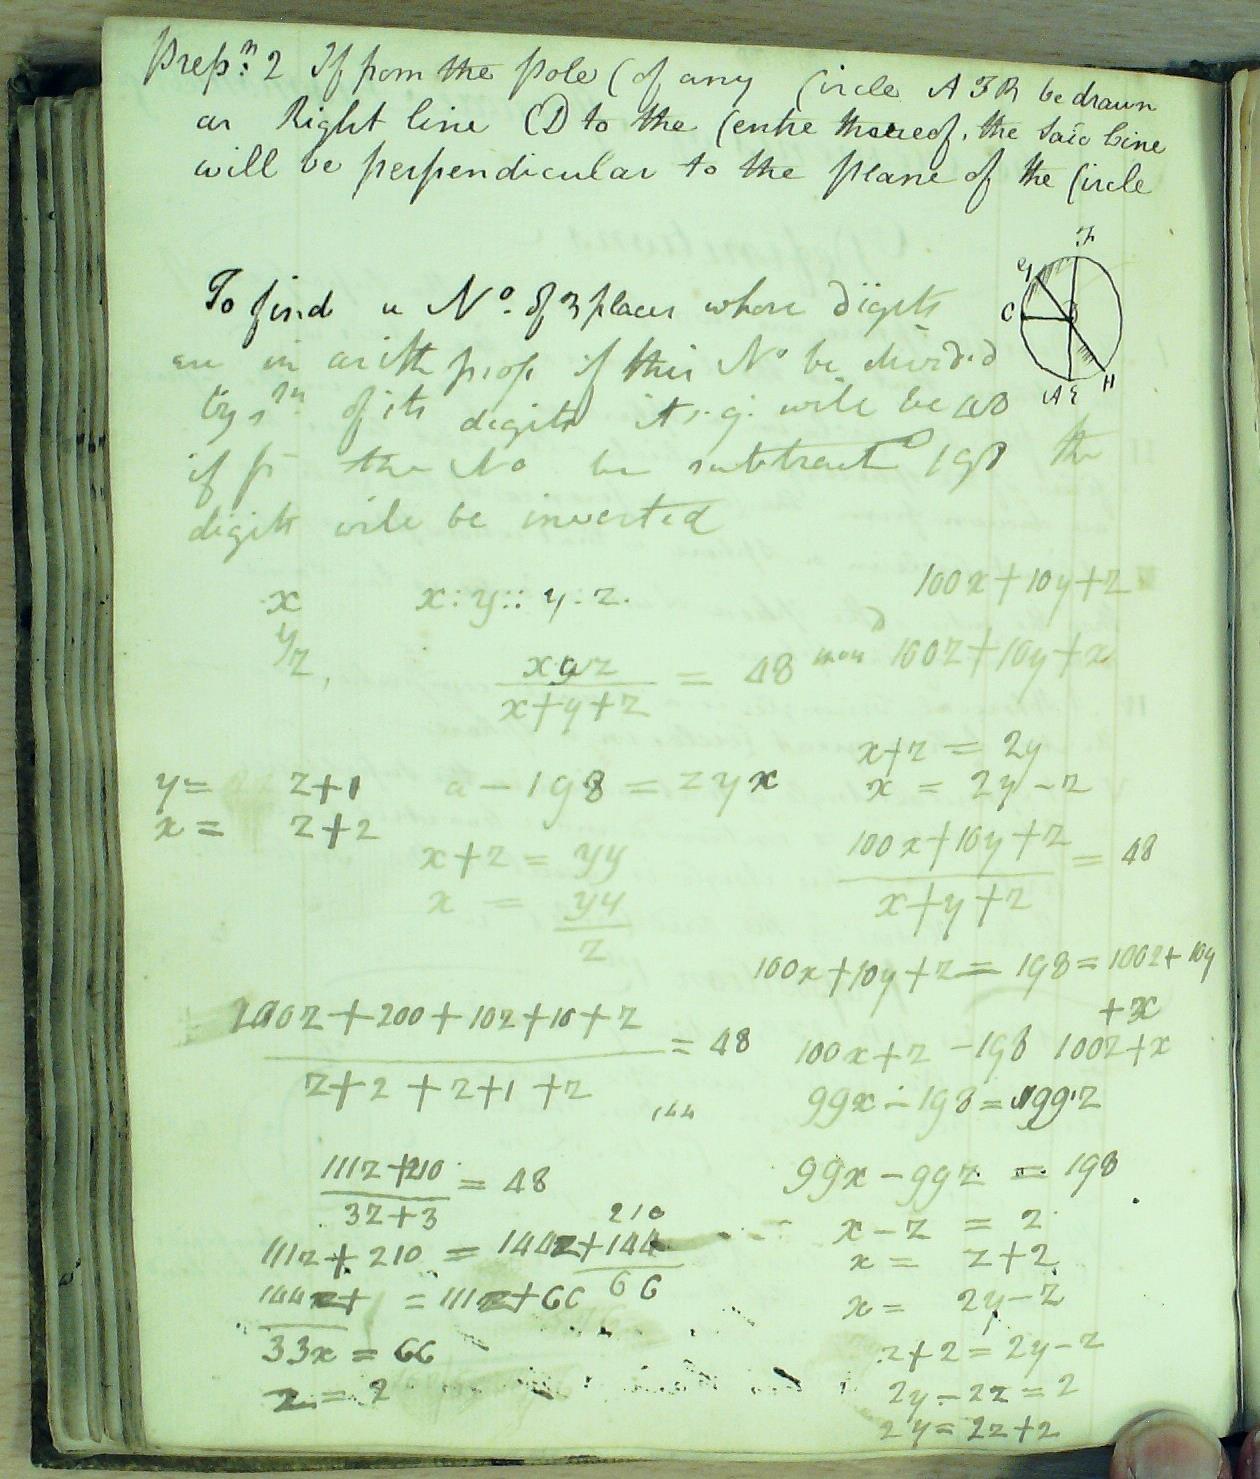 Prepn. 2 If from the Pole C of any Circle A F B be drawn
a Right line CD to the Centre thereof, the said line
will be perpendicular to the plane of the Circle
F
G
C
A E H
To find a No. of 3 places whose digits
are in arith prop. if this No be divided
by sm of its digits it's q: will be 48
if fr the No be subtractd 198 the
digits will be inverted
100x+10y+z
x
x:y::y:z.
y
z,
xyz / x+y+z = 48
100z+10y+x
x+z = 2y
y= z+1
a - 198 = zyx
x = 2y-z
x= z+2
x+z = yy
100x+10y+z / x+y+z = 48
x = yy / z
100x+10y+z = 198 = 100z+10y
+x
100z+200+10z+10+z / z+2+z+1+z = 48
100x+z -198 100z+x
99x-198=99z
144
111z+210 / 3z+3 = 48
99x-99z = 198
210
x-z = 2
111z+210 = 144z+144
x= z+2
66
144z+ =111z+66
x= 2y-z
33x = 66
z+2=2y-z
z = 2
2y-2z=2
2y=2z+2